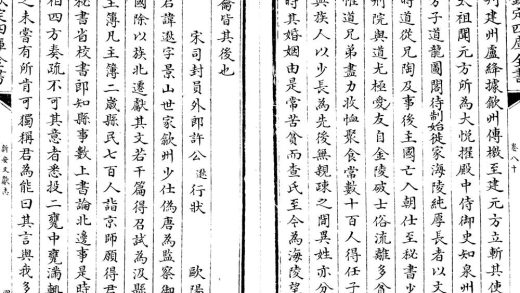 欽定四庫全書
卷八十
判建州盧絳據歙州傳檄至建元方立斬其使
太祖聞元方所為大悅擢殿中侍御史知泉州
方子道龍圖閣待制始徙家海陵純厚長者以文
時道從兄陶及事後主國亡入朝仕至秘書少
刑院與道尤極愛友自金陵破士俗流離多貧
惟道兄弟盡力收恤聚食常數十百人得任子
與族人以少長為先後無親疎之間異姓亦分
時其婚姻由是常苦貧而查氏至今為海陵望
裔皆其後也
宋司封員外郎許公逖行狀 歐陽
君諱逖字景山世家歙州少仕偽唐為監察御
國除以族北遷獻其文若干篇得召試為汲縣
主簿凡主簿二歲縣民七百人詣京師願得君
秘書省校書郎知縣事數上書論北邊事是時
相四方奏疏不可其意者悉投二甕中甕滿輒
之未嘗有所肯可獨稱君為能曰其言與我多
欽定四庫全書
新安文獻志